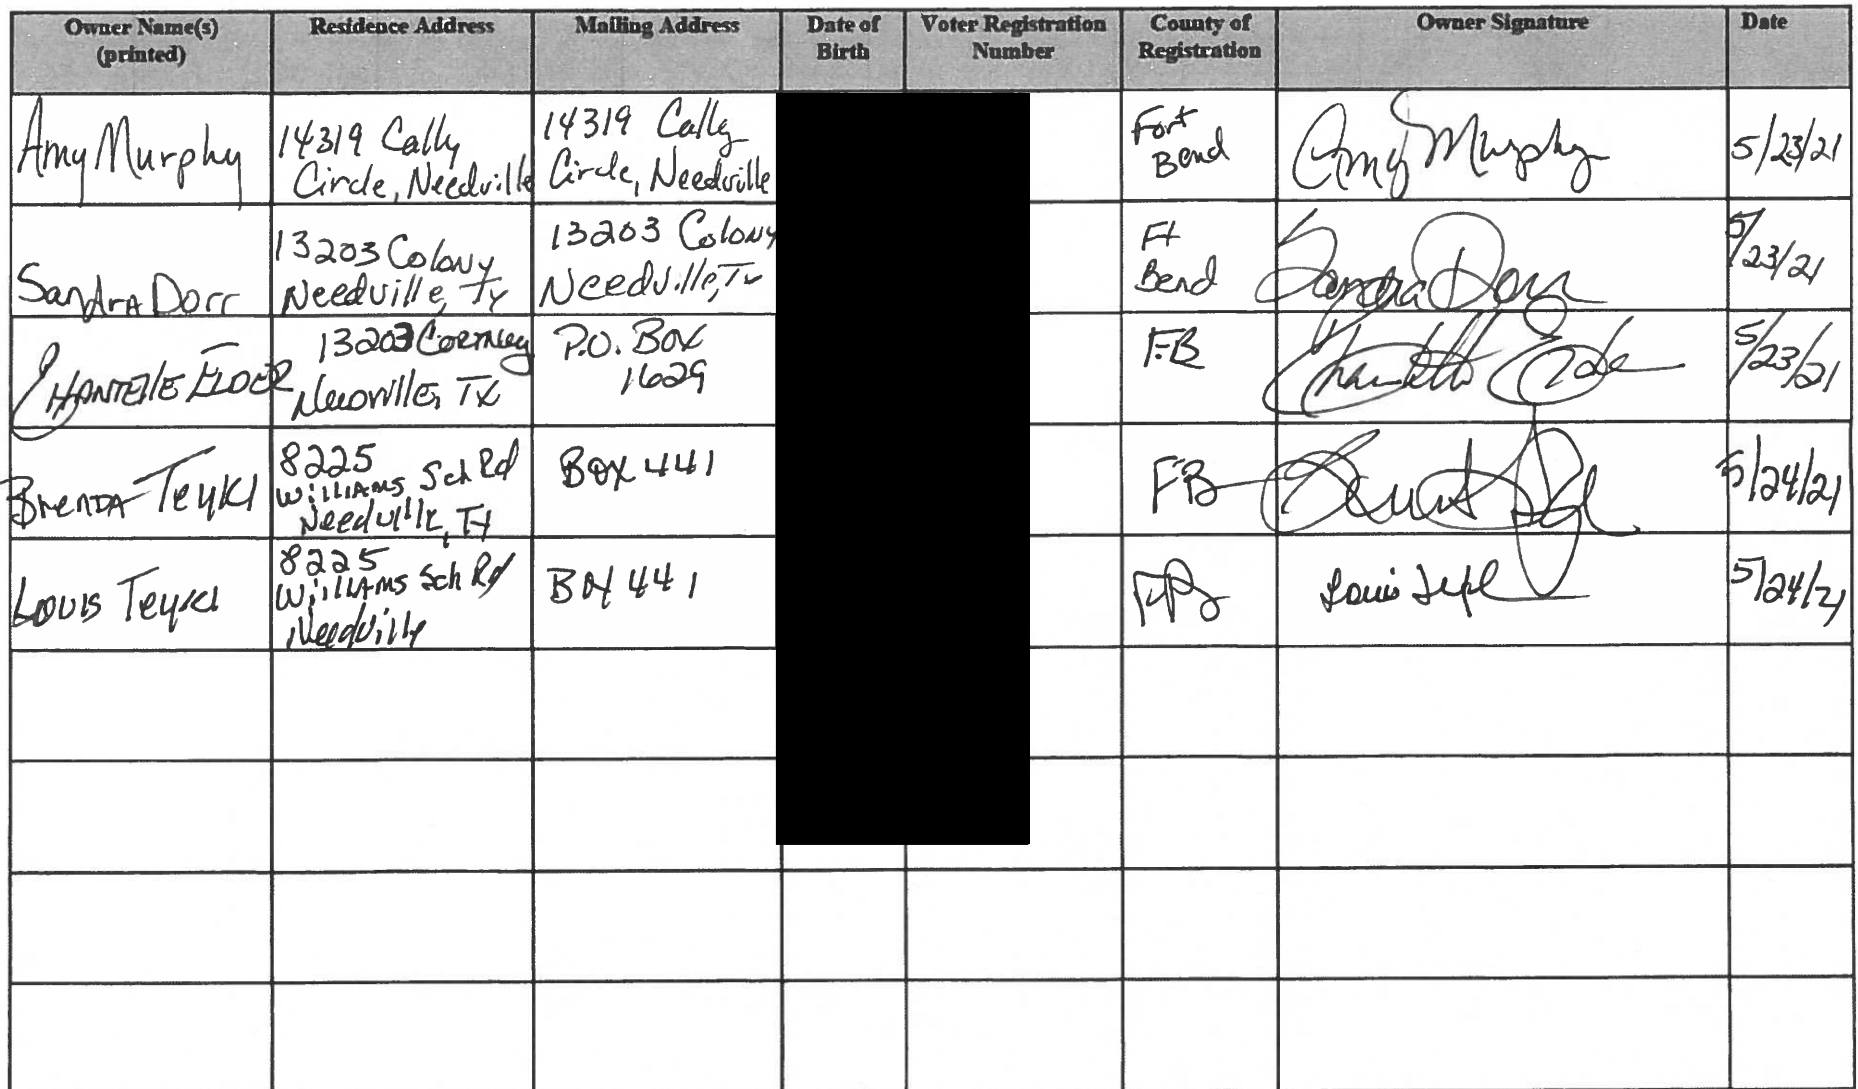 Owner Name(s) Residence Address Mailing Address Date of Voter Registration County of Owner Signature Date
(printed) Birth Number Registration
Amy Murphy
14319 Cally
Circle, Needville
14319 Cally
Circle, Needville
Fort
Bend
Amy Murphy
5/23/21
Sandra Dorr
13203 Colony
Needville, Tx
13203 Colony
Needville, Tx
Ft
Bend
Sandra Dorr
5/23/21
CHANTELLE ELDER
13203
TX
P.O. Box
1629
FB
Chantelle Elder
5/23/21
Brenda
8225
Williams Sch Rd
Needville, TX
Box 441
FB
5/24/21
Louis
8225
Williams Sch Rd
Needville
Box 441
FB
Louis
5/24/21